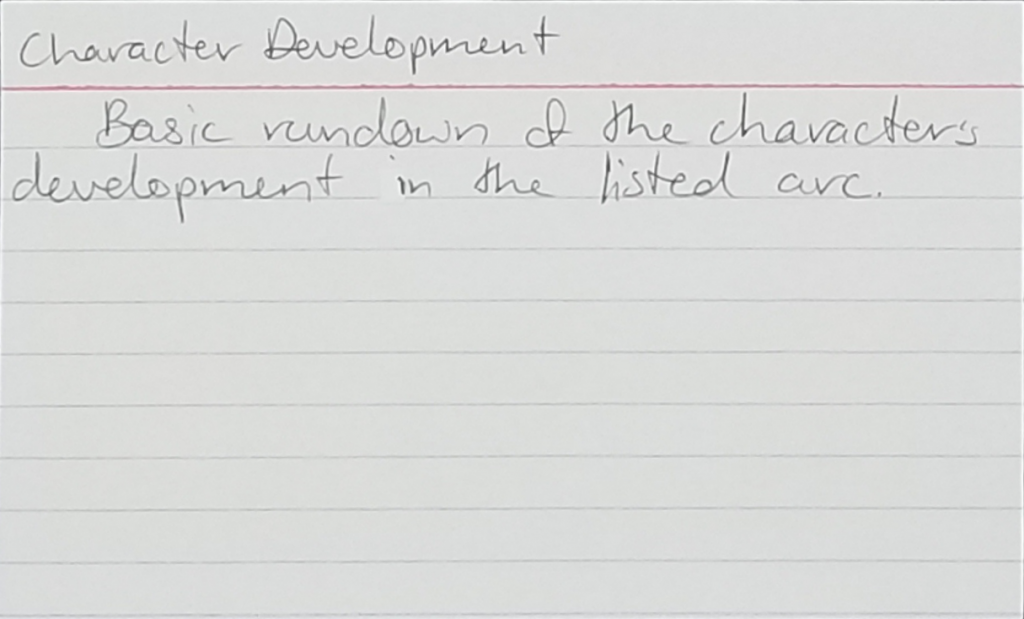 Character Development
Basic rundown of the character's
development in the listed arc.